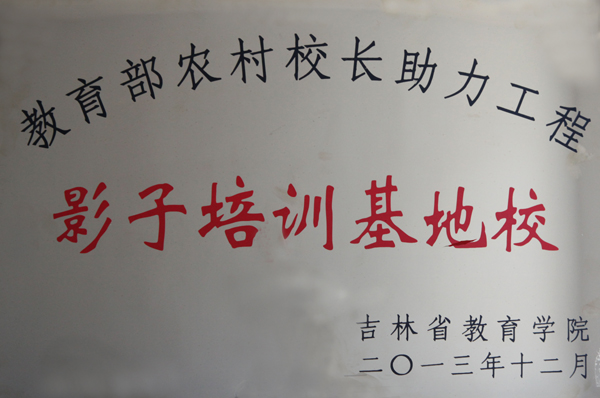 教育部农村校长助力工程
影子培训基地校
吉林省教育学院
二〇一三年十二月